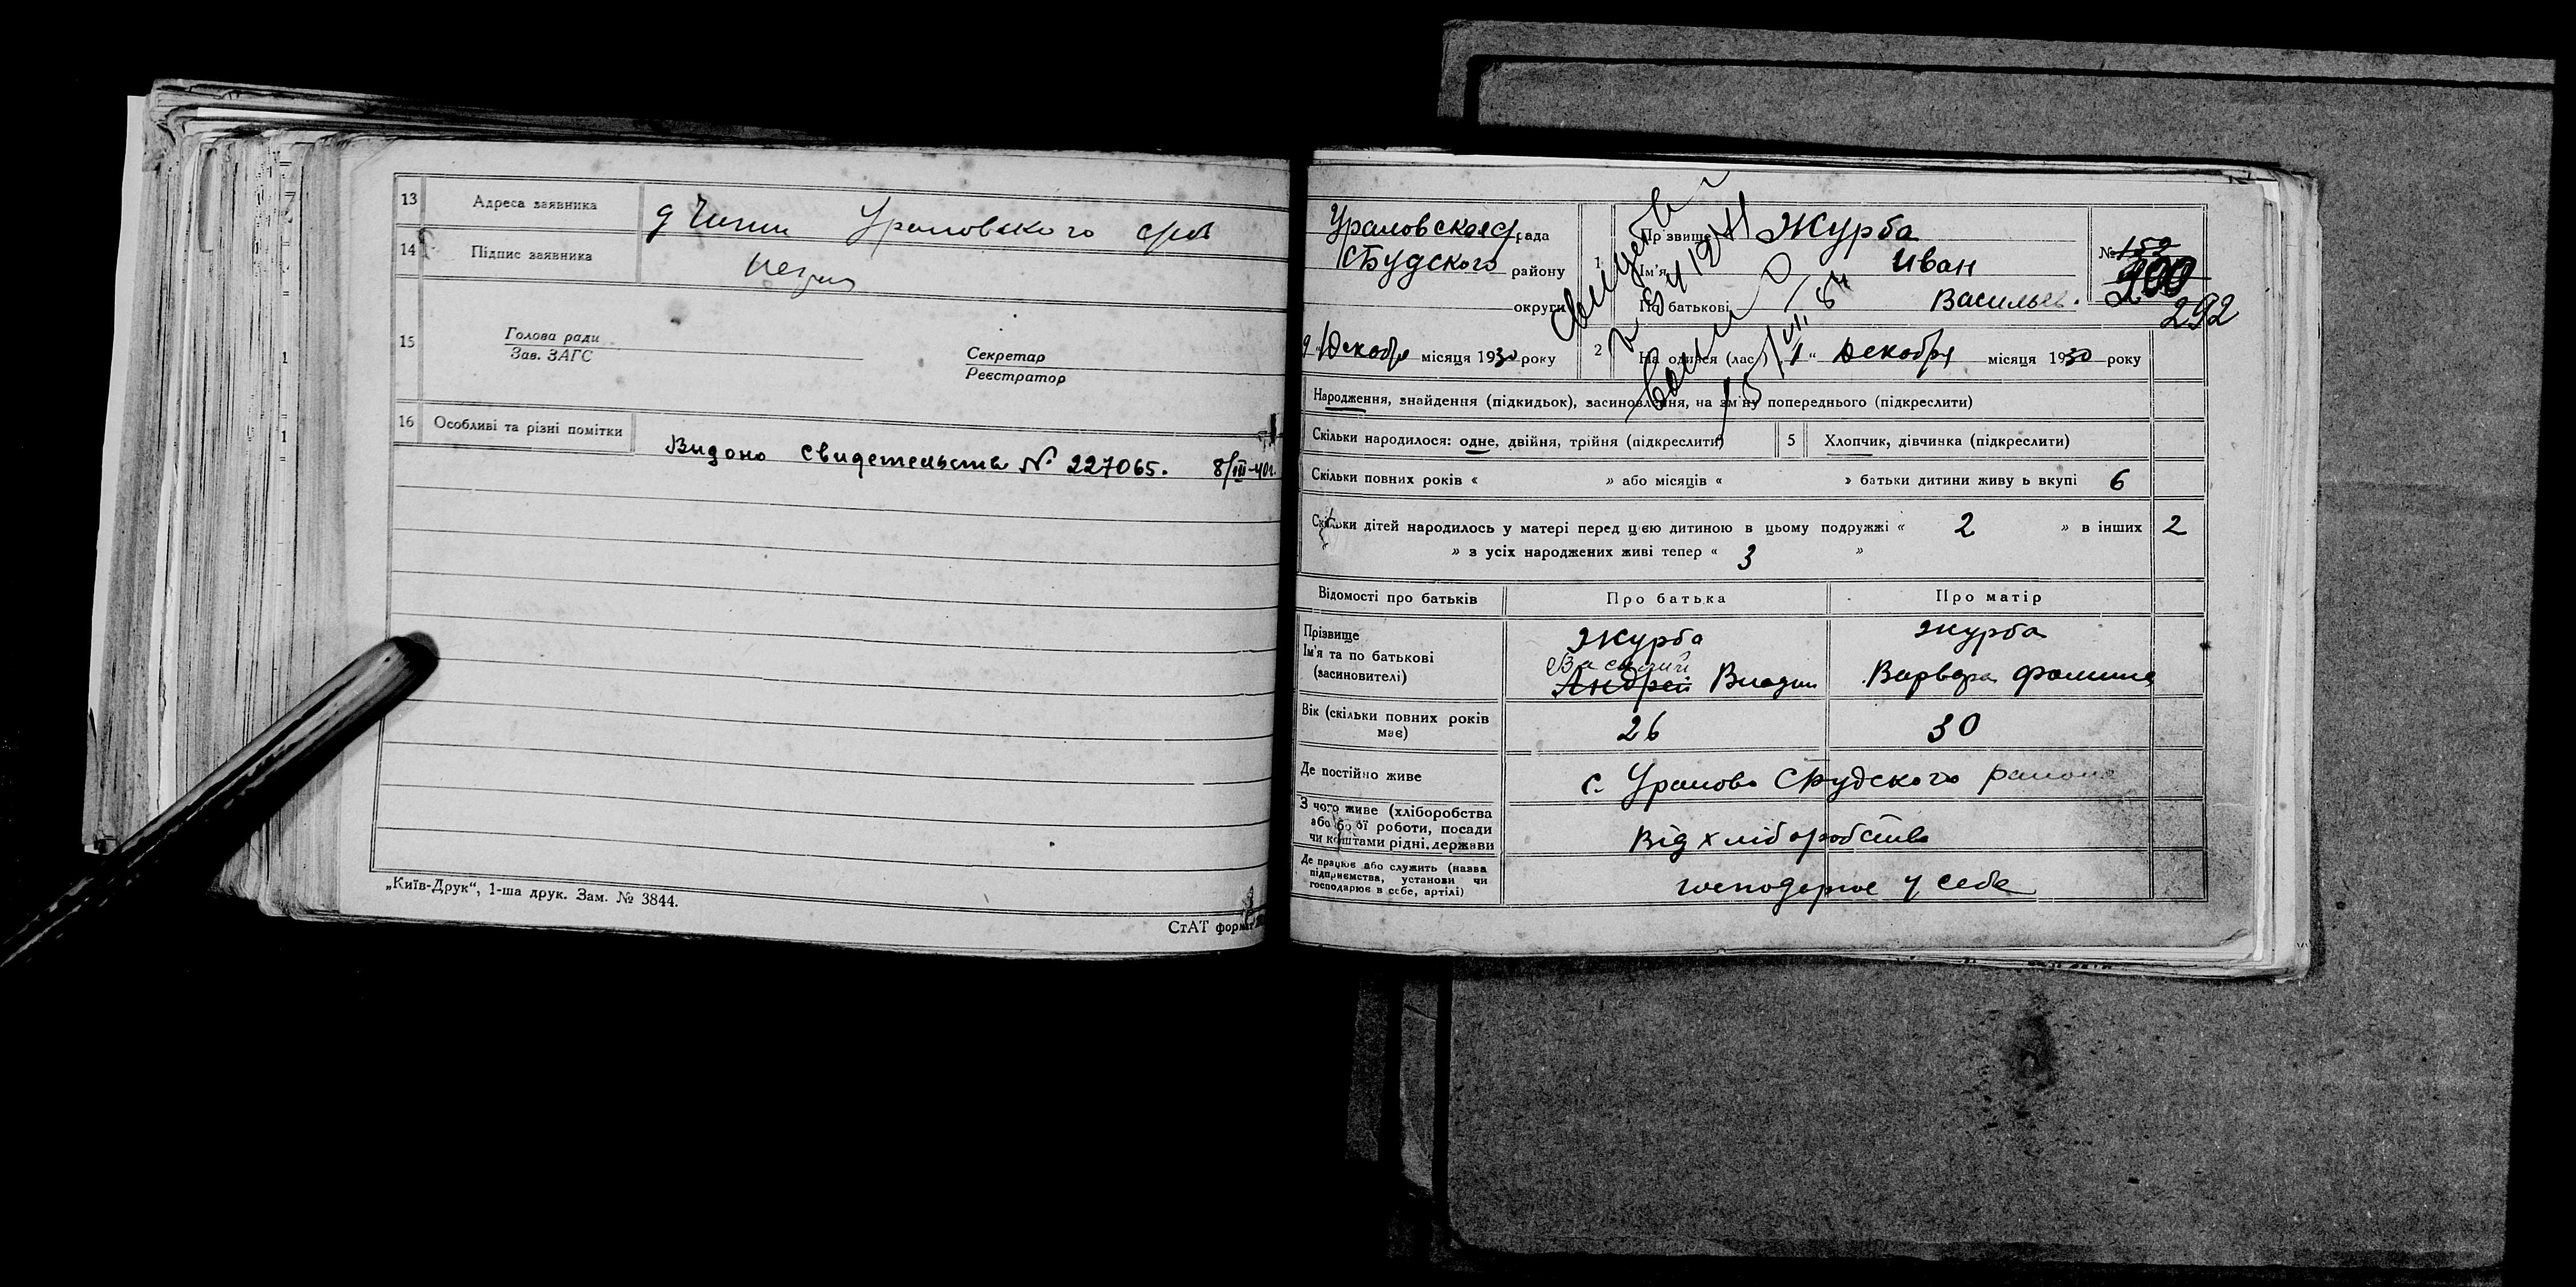 13 Адреса заявника Ураловского
14 Підпис заявника
15 Голова ради
Зав. ЗАГС
Секретар
Реєстратор
16 Особливі та різні помітки
Видоно свидетельства № 227065. 8/III-40г.
„Київ-Друк“, 1-ша друк. Зам. № 3844.
СтАТ форма
Ураловская рада
СБудского району
округи
1 Прізвище Журба
Ім'я Иван
По батькові Васильев.
№ 152
200
292
9 Декабря місяця 1930 року
2 На одився (лас ) 1 “ Декабря місяця 1930 року
Народження, знайдення (підкидьок), засиновлення, на зміну попереднього (підкреслити)
Скільки народилося: одне, двійня, трійня (підкреслити)
5 Хлопчик, дівчинка (підкреслити)
Скільки повних років « » або місяців « » батьки дитини живу ь вкупі 6
Скільки дітей народилось у матері перед цією дитиною в цьому подружжі « 2 » в інших 2
» з усіх народжених живі тепер « 3 »
Відомості про батьків Про батька Про матір
Прізвище Журба Журба
Ім'я та по батькові Василий
(засновителі) Андрей Варвара
Вік (скільки повних років має) 26 30
Де постійно живе с. Уралово СБудского района
З чого живе (хліборобства
або бо ої роботи, посади
чи коштами рідні, держави
Від хліборобства
Де працює або служить (назва
підприємства, установи чи
господарює в себе, артілі)
господарює у себе